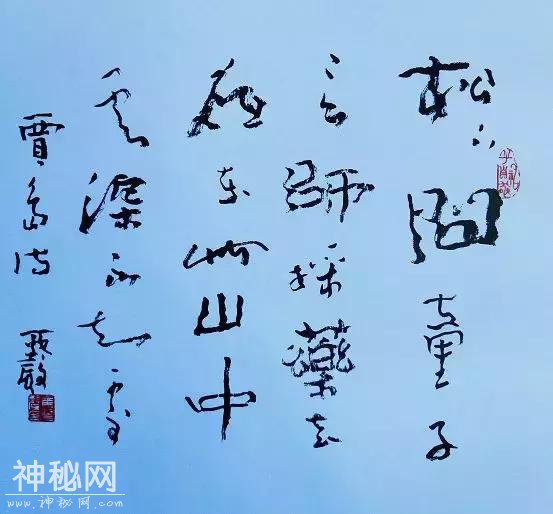 松下問童子
言師採藥去
祇在此山中
雲深不知處
賈島诗
神秘网
www.神秘网.com